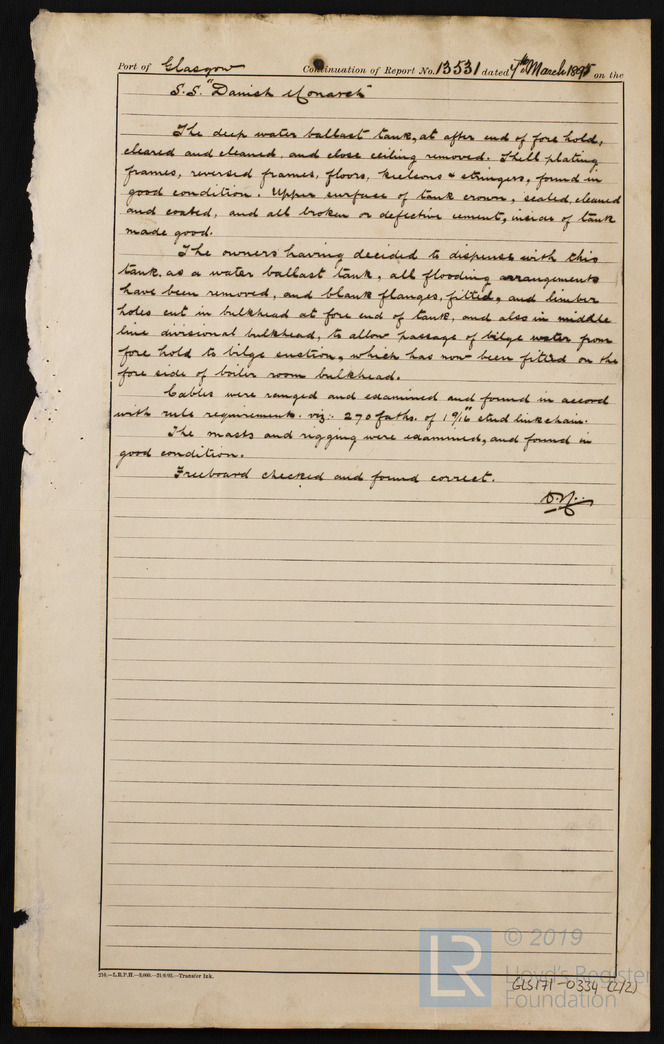 Port of Glasgow Continuation of Report No. 13531 dated 7th March 1895 on the
S.S. "Danish Monarch"
The deep water ballast tank, at after end of fore hold,
cleared and cleaned, and close ceiling removed. Shell plating,
frames, reversed frames, floors, keelsons & stringers, found in
good condition. Upper surface of tank crown, scaled, cleaned
and coated, and all broken or defective cement, inside of tank
made good.
The owners having decided to dispense with this
tank, as a water ballast tank, all flooding arrangements
have been removed, and blank flanges, fitted, and limber
holes cut in bulkhead at fore end of tank, and also in middle
line divisional bulkhead, to allow passage of bilge water from
fore hold to bilge suction, which has now been fitted on the
fore side of boiler room bulkhead.
Cables were ranged and examined and found in accord
with rule requirements. viz: 270 faths. of 1 9/16" stud link chain.
The masts and rigging were examined, and found in
good condition.
Freeboard checked and found correct.
210.—L.R.P.H.—8,000.—21/6/93.—Transfer Ink.
LR
© 2019
Lloyd's Register
Foundation
GLS171-0334 (2/2)